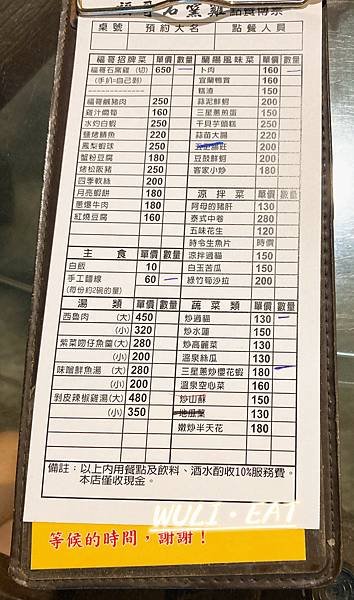 福哥石窯雞 點餐傳票
桌號 預約大名 點餐人員
福哥招牌菜 單價 數量
福哥石窯雞(切) 650
(手扒=自己剝)
福哥鹹豬肉 250
雞汁燜筍 160
水灼白蝦 250
鹽烤鯖魚 220
鳳梨蝦球 250
蟹粉豆腐 180
烤松阪豬 250
四季軟絲 200
月亮蝦餅 180
蔥爆牛肉 180
紅燒豆腐 160
主食 單價 數量
白飯 10
手工麵線 60
(每份約2碗的量)
湯類 單價 數量
西魯肉 (大) 450
(小) 320
紫菜吻仔魚羹(大) 280
(小) 200
味噌鮮魚湯 (大) 280
(小) 200
剝皮辣椒雞湯(大) 480
(小) 350
蘭陽風味菜 單價 數量
卜肉 160
宜蘭鴨賞 160
糕渣 150
蒜泥鮮蚵 200
三星蔥煎蛋 150
干貝芋頭糕 250
蒜苗大腸 220
200
豆鼓鮮蚵 200
客家小炒 180
涼拌菜 單價 數量
阿母的豬肝 180
泰式中卷 280
五味花生 120
時令生魚片 時價
涼拌過貓 150
白玉苦瓜 150
綠竹筍沙拉 200
蔬菜類 單價 數量
炒過貓 130
炒水蓮 150
炒高麗菜 130
溫泉絲瓜 130
三星蔥炒櫻花蝦 180
溫泉空心菜 160
炒山蘇 150
地瓜葉 130
嫩炒半天花 180
備註：以上內用餐點及飲料、酒水酌收10%服務費。
本店僅收現金。
WULI·EAT
等候的時間，謝謝！